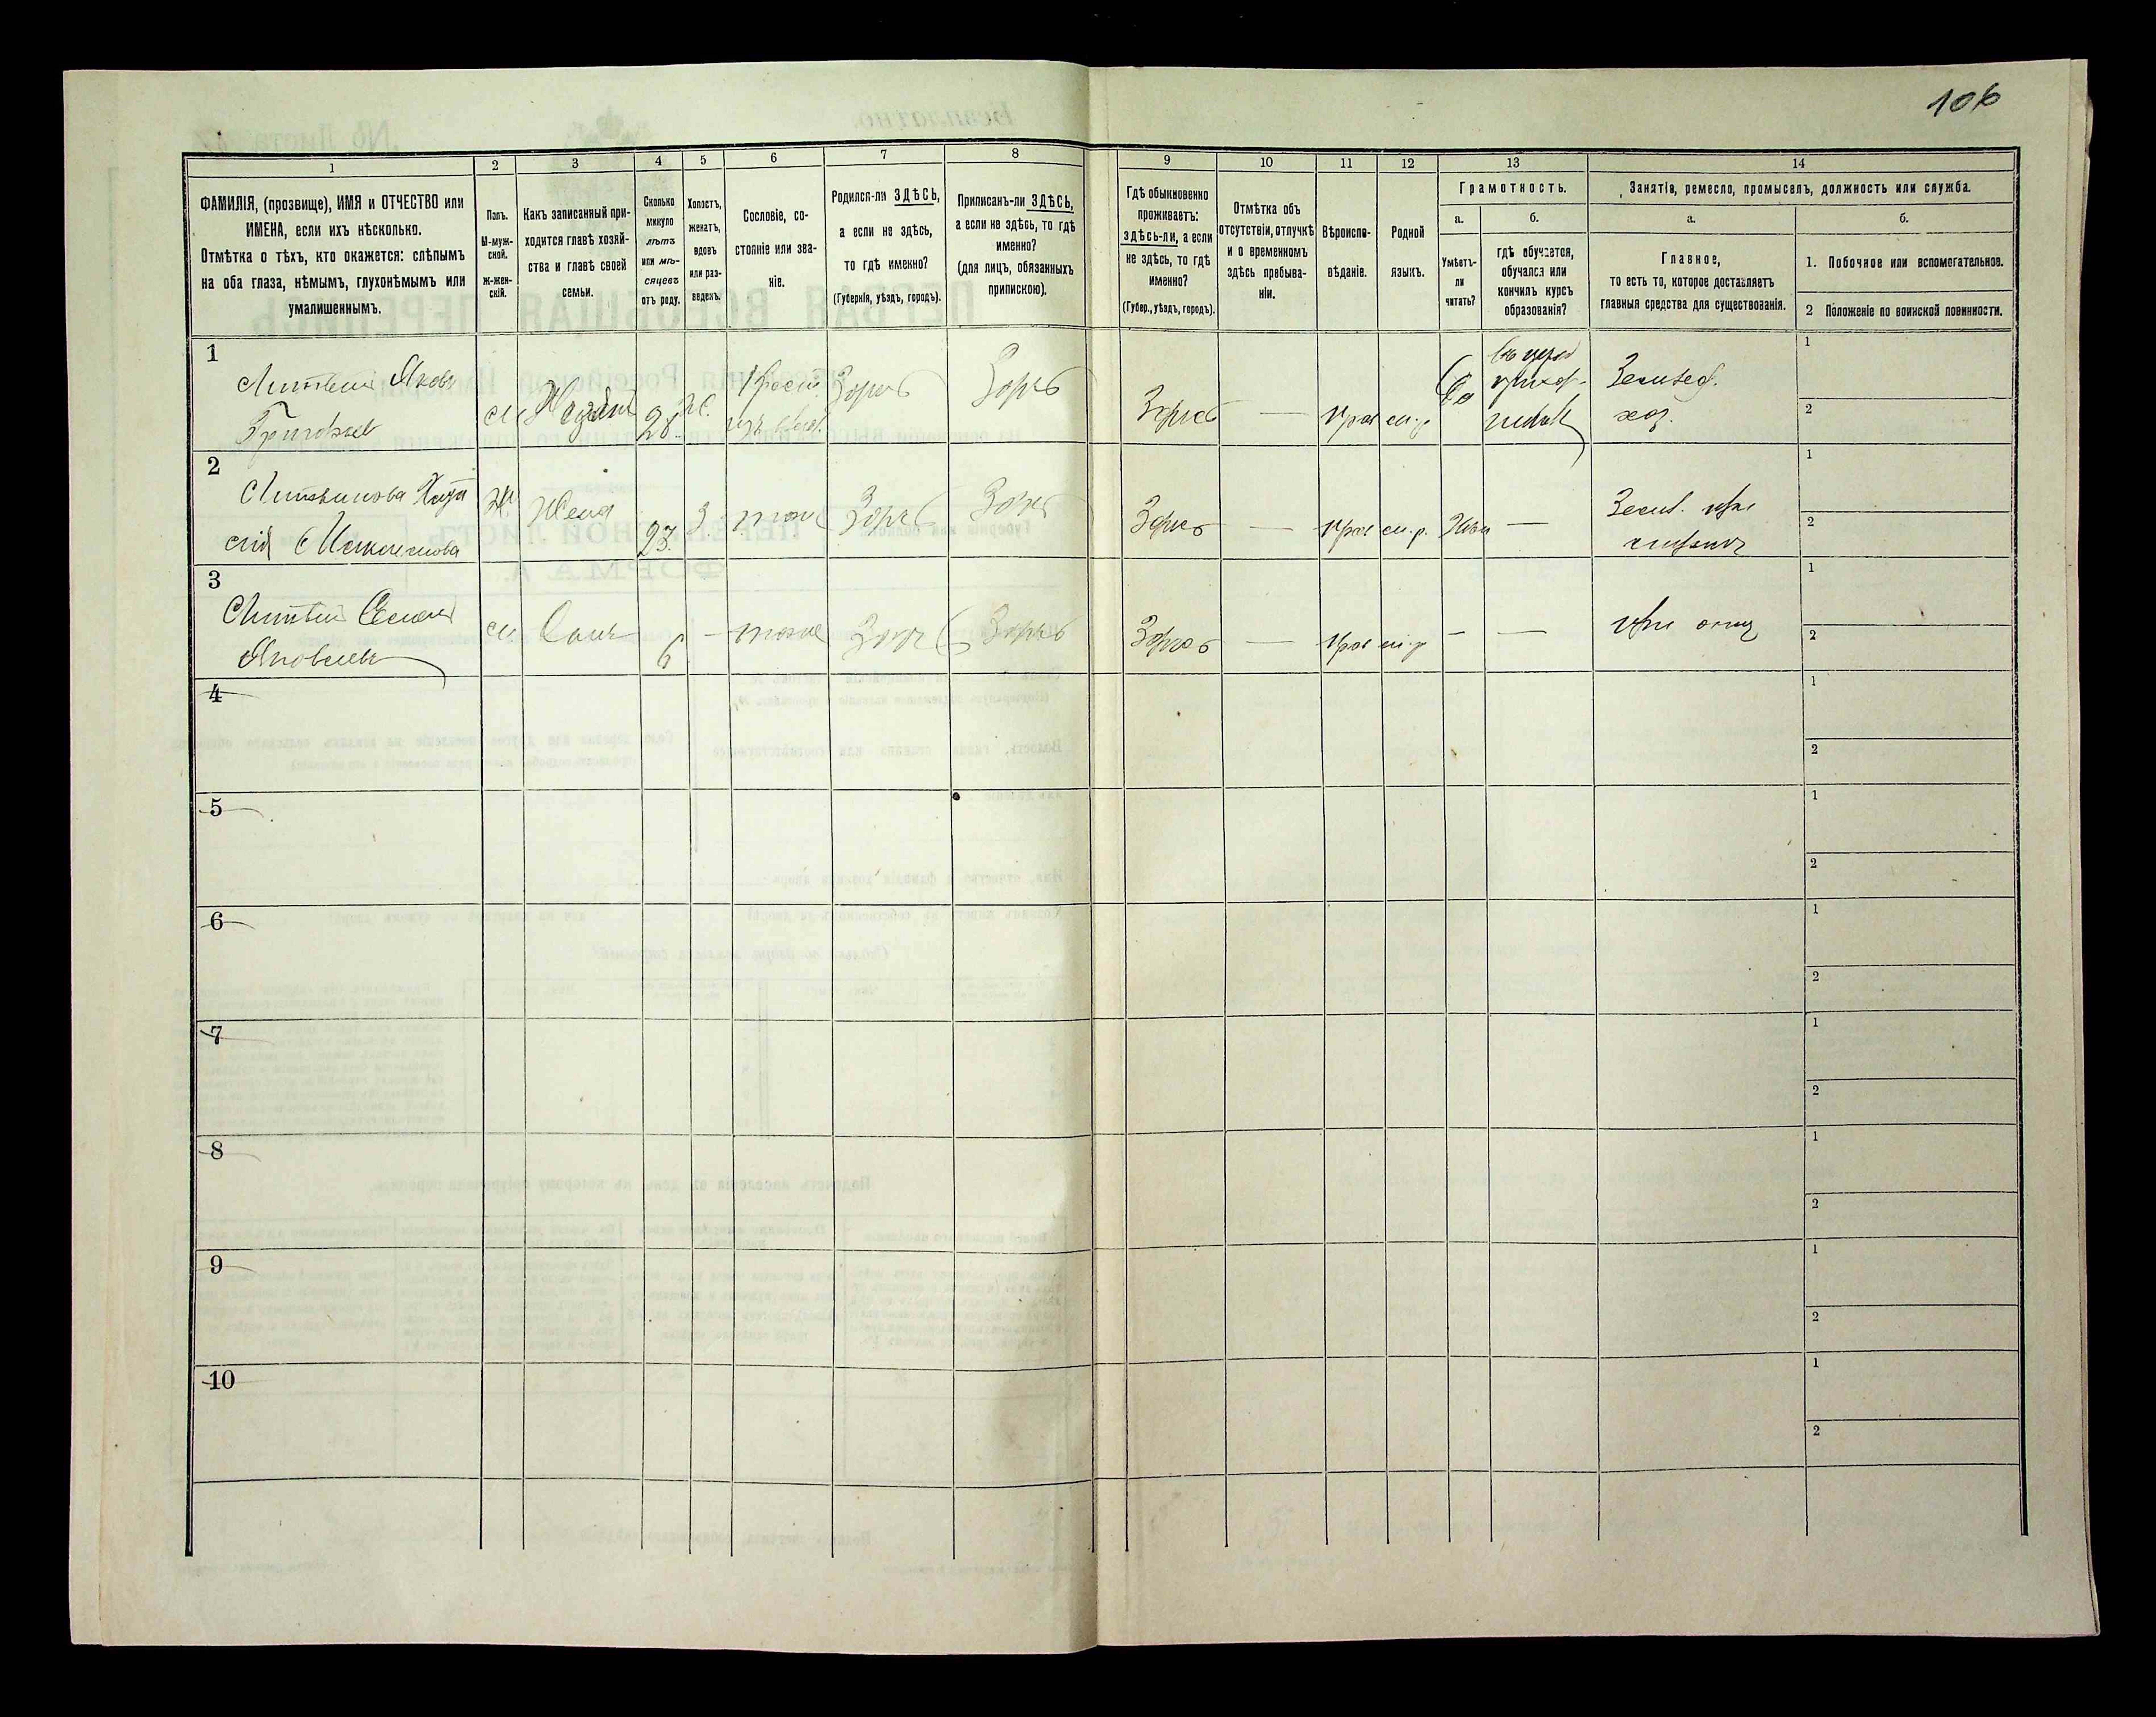 106
1
2
3
4
5
6
7
8
9
10
11
12
13
14
ФАМИЛІЯ, (прозвище), ИМЯ и ОТЧЕСТВО или
ИМЕНА, если ихъ нѣсколько.
Отмѣтка о тѣхъ, кто окажется: слѣпымъ
на оба глаза, нѣмымъ, глухонѣмымъ или
умалишеннымъ.
Полъ.
М-муж-
ской.
Ж-жен-
скій.
Какъ записанный при-
ходится главѣ хозяй-
ства и главѣ своей
семьи.
Сколько
минуло
лѣтъ
или мѣ-
сяцевъ
отъ роду.
Холостъ,
женатъ,
вдовъ
или раз-
веденъ.
Сословіе, со-
стояніе или зва-
ніе.
Родился-ли ЗДѢСЬ,
а если не здѣсь,
то гдѣ именно?
(Губернія, уѣздъ, городъ).
Приписанъ-ли ЗДѢСЬ,
а если не здѣсь, то гдѣ
именно?
(для лицъ, обязанныхъ
припискою).
Гдѣ обыкновенно
проживаетъ:
здѣсь-ли, а если
не здѣсь, то гдѣ
именно?
(Губер., уѣздъ, городъ).
Отмѣтка объ
отсутствіи, отлучкѣ
и о временномъ
здѣсь пребыва-
ніи.
Вѣроиспо-
вѣданіе.
Родной
языкъ.
Грамотность.
а.
Умѣетъ-
ли
читать?
б.
гдѣ обучается,
обучался или
кончилъ курсъ
образованія?
Занятія, ремесло, промыселъ, должность или служба.
а.
Главное,
то есть то, которое доставляетъ
главныя средства для существованія.
б.
1. Побочное или вспомогательное.
2 Положеніе по воинской повинности.
1
Литвин Яковъ
Григорьев
м
28
ж.
Крест.
Здѣсь
Здѣсь
Здѣсь
—
прав
м.р
Да
Землед.
хоз.
1
2
2
Литвинова
Ж
Жена
23.
З.
тоже
Здѣсь
Здѣсь
Здѣсь
—
прав
м.р.
—
Земл. при
1
2
3
Литвин
Яковлевъ
м.
Сынъ
6
—
тоже
Здѣсь
Здѣсь
Здѣсь
—
прав
м.р
—
—
при отцѣ
1
2
4
1
2
5
1
2
6
1
2
7
1
2
8
1
2
9
1
2
10
1
2